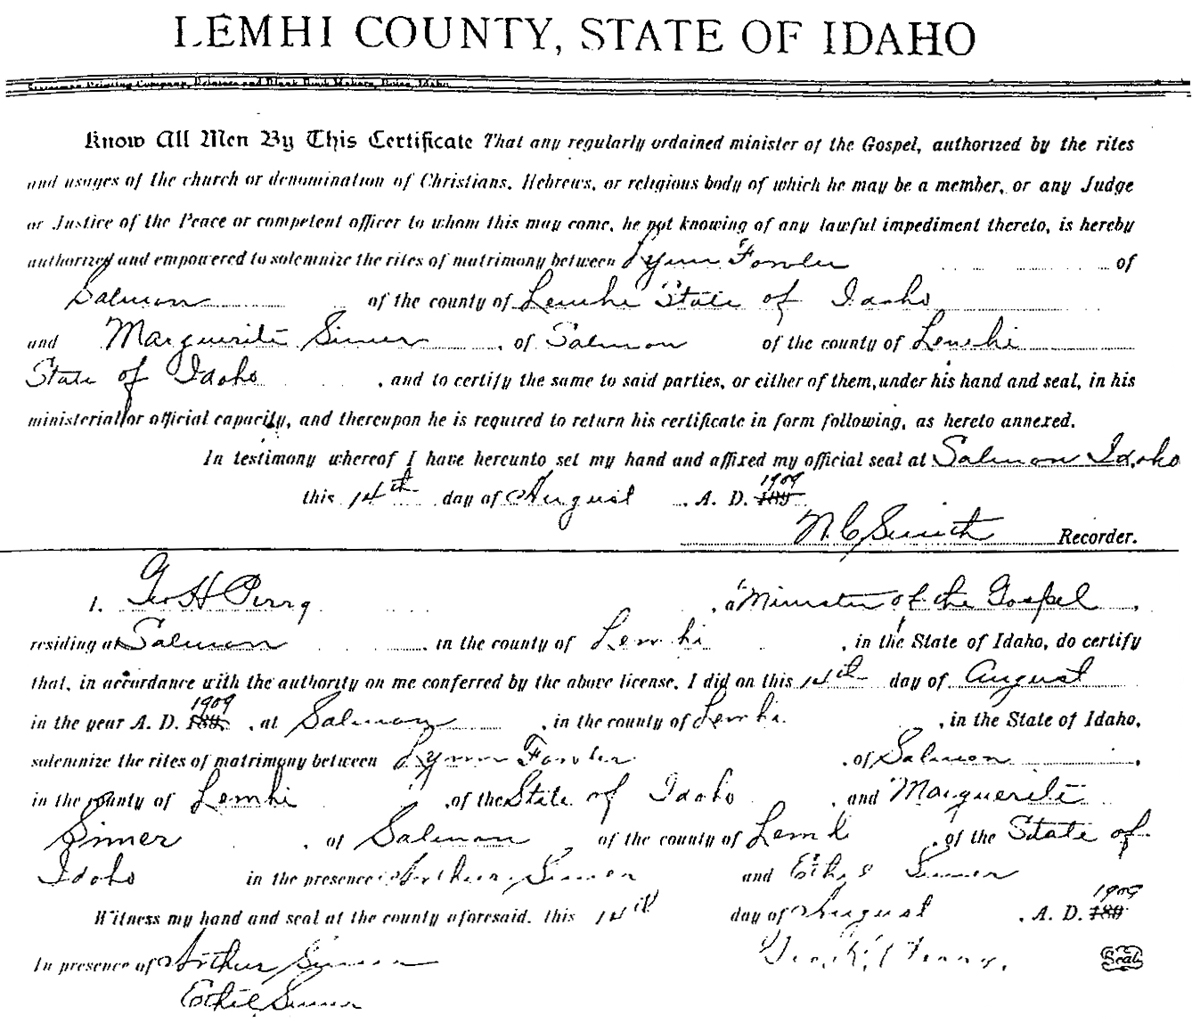 LEMHI COUNTY, STATE OF IDAHO
Statesman Printing Company, Printers and Blank Book Makers, Boise, Idaho
Know All Men By This Certificate That any regularly ordained minister of the Gospel, authorized by the rites
and usages of the church or denomination of Christians, Hebrews, or religious body of which he may be a member, or any Judge
or Justice of the Peace or competent officer to whom this may come, he not knowing of any lawful impediment thereto, is hereby
authorized and empowered to solemnize the rites of matrimony between Lynn Fowler of
Salmon of the county of Lemhi State of Idaho
and Marguerite Simer, of Salmon of the county of Lemhi
State of Idaho, and to certify the same to said parties, or either of them, under his hand and seal, in his
ministerial or official capacity, and thereupon he is required to return his certificate in form following, as hereto annexed.
In testimony whereof I have hereunto set my hand and affixed my official seal at Salmon Idaho
this 14th day of August, A. D. 1909
N. C. Smith Recorder.
I. Geo H Perry, a Minister of the Gospel,
residing at Salmon, in the county of Lemhi, in the State of Idaho, do certify
that, in accordance with the authority on me conferred by the above license, I did on this 14th day of August
in the year A. D. 1909, at Salmon, in the county of Lemhi, in the State of Idaho,
solemnize the rites of matrimony between Lynn Fowler, of Salmon,
in the county of Lemhi, of the State of Idaho, and Marguerite
Simer, of Salmon of the county of Lemhi, of the State of
Idaho in the presence of Arthur Simer and Ethel Simer
Witness my hand and seal at the county aforesaid, this 14th day of August, A. D. 1909
In presence of Arthur Simer Geo. H. Perry. Seal
Ethel Simer